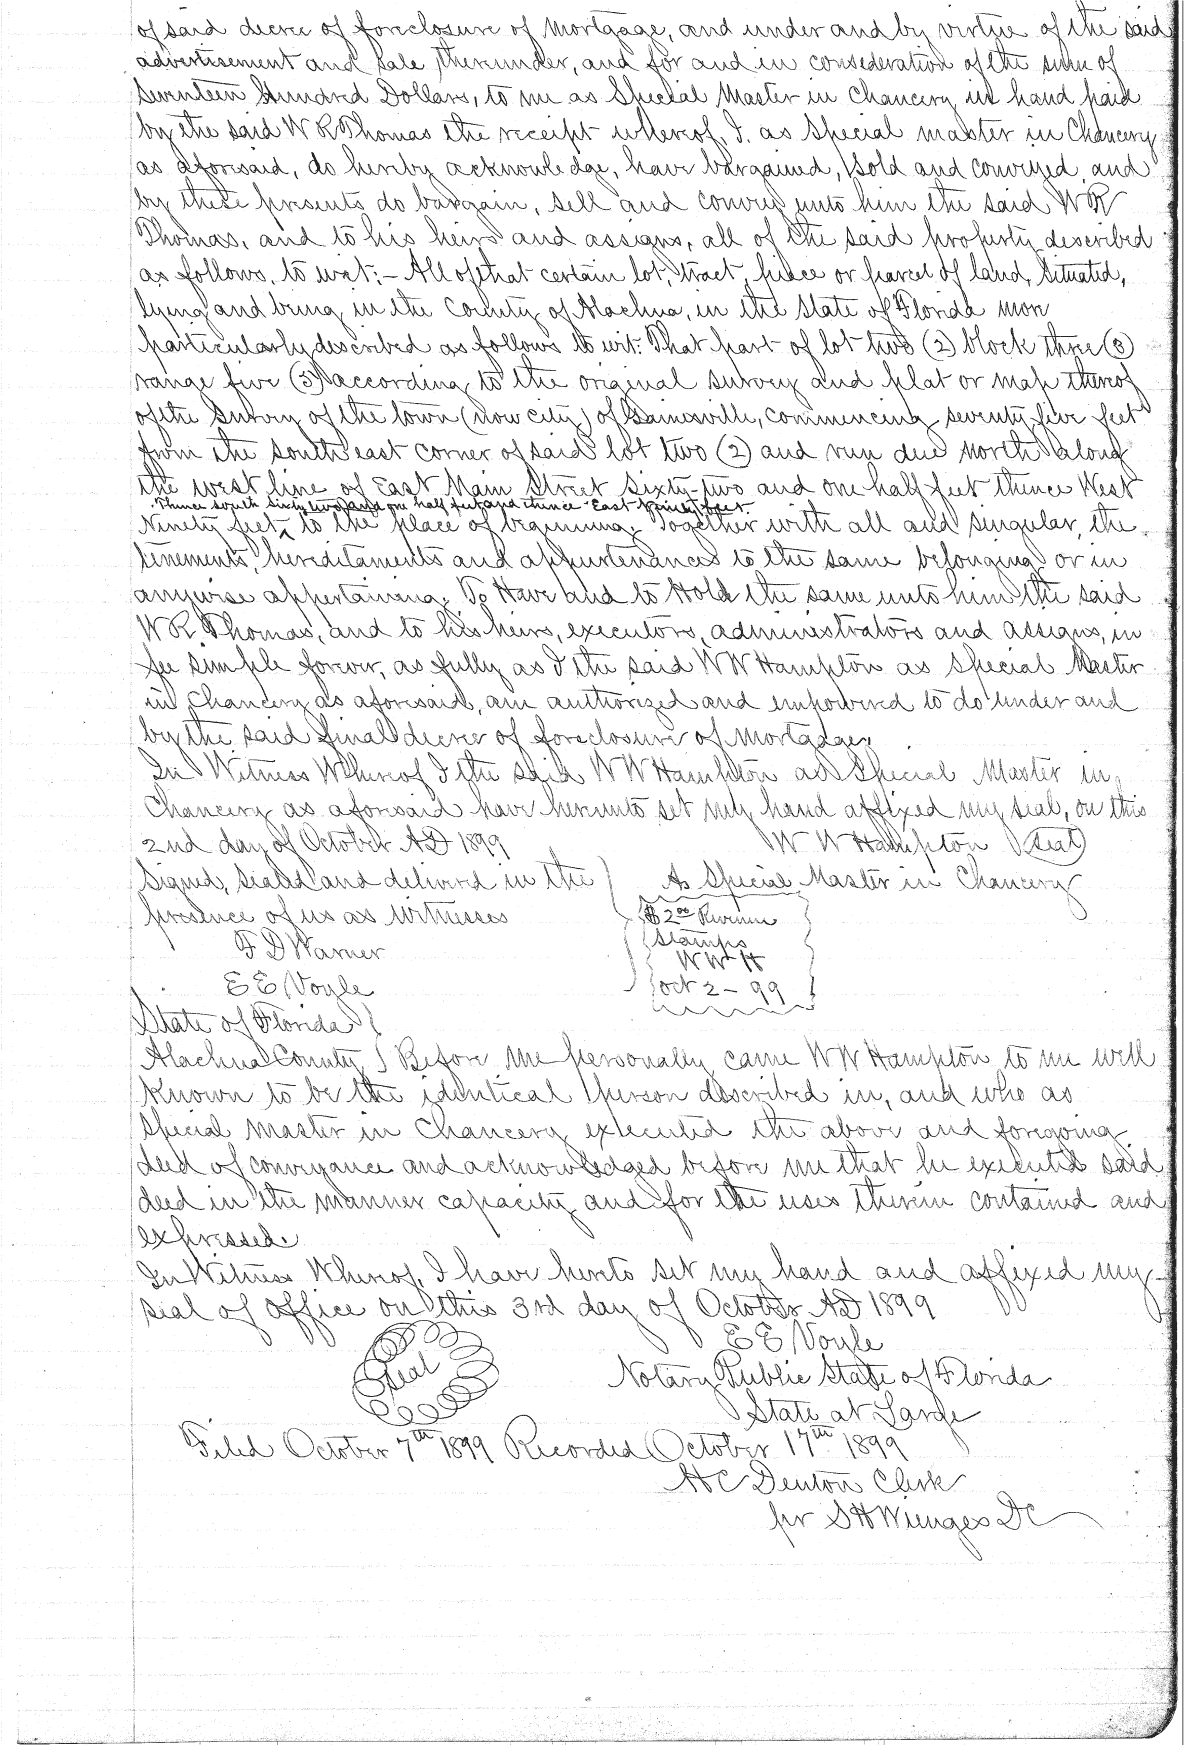 of said decree of foreclosure of Mortgage, and under and by virtue of the said
advertisement and sale thereunder, and for and in consideration of the sum of
Seventeen Hundred Dollars, to me as Special Master in Chancery in hand paid
by the said W R Thomas the receipt whereof, I. as Special master in Chancery
as aforesaid, do hereby acknowledge, have bargained, Sold and conveyed, and
by these presents do bargain, sell and convey unto him the said W R
Thomas, and to his heirs and assigns, all of the said property described
as follows, to wit:- All of that certain lot, tract, piece or parcel of land, situated,
lying and being in the County of Alachua, in the State of Florida more
particularly described as follows to wit: That part of lot two (2) block three (3)
range five (5) according to the original survey and plat or map thereof
of the Survey of the town (now city) of Gainesville, commencing seventy five feet
from the south east corner of said lot two (2) and run due north along
the west line of East Main Street sixty-two and one half feet thence West
Thence south sixty two and one half feet and thence East Ninety feet.
Ninety feet, to the place of beginning. Together with all and singular, the
tenements, hereditaments and appurtenances to the same belonging or in
anywise appertaining. To Have and to Hold the same unto him the said
W R Thomas, and to his heirs, executors, administrators and assigns, in
fee simple forever, as fully as I the said W W Hampton as Special Master
in Chancery as aforesaid, am authorized and empowered to do under and
by the said final decree of foreclosure of Mortgage.
In Witness Whereof I the said W W Hampton as Special Master in
Chancery as aforesaid have hereunto set my hand affixed my seal, on this
2nd day of October AD 1899 W W Hampton (seal)
Signed, Sealed and delivered in the As Special Master in Chancery
presence of us as witnesses $2 00 Revenue
Stamps
F D Warner W W H
E E Voyle Oct 2 - 99
State of Florida
Alachua County Before me personally came W W Hampton to me well
Known to be the identical person described in, and who as
Special Master in Chancery executed the above and foregoing
deed of conveyance and acknowledged before me that he executed said
deed in the manner capacity and for the uses therein contained and
expressed.
In Witness Whereof, I have hereto set my hand and affixed my
seal of office on this 3rd day of October AD 1899
E E Voyle
Seal Notary Public State of Florida
State at Large
Filed October 7th 1899 Recorded October 17th 1899
H C Denton Clerk
per S H Wienges DC